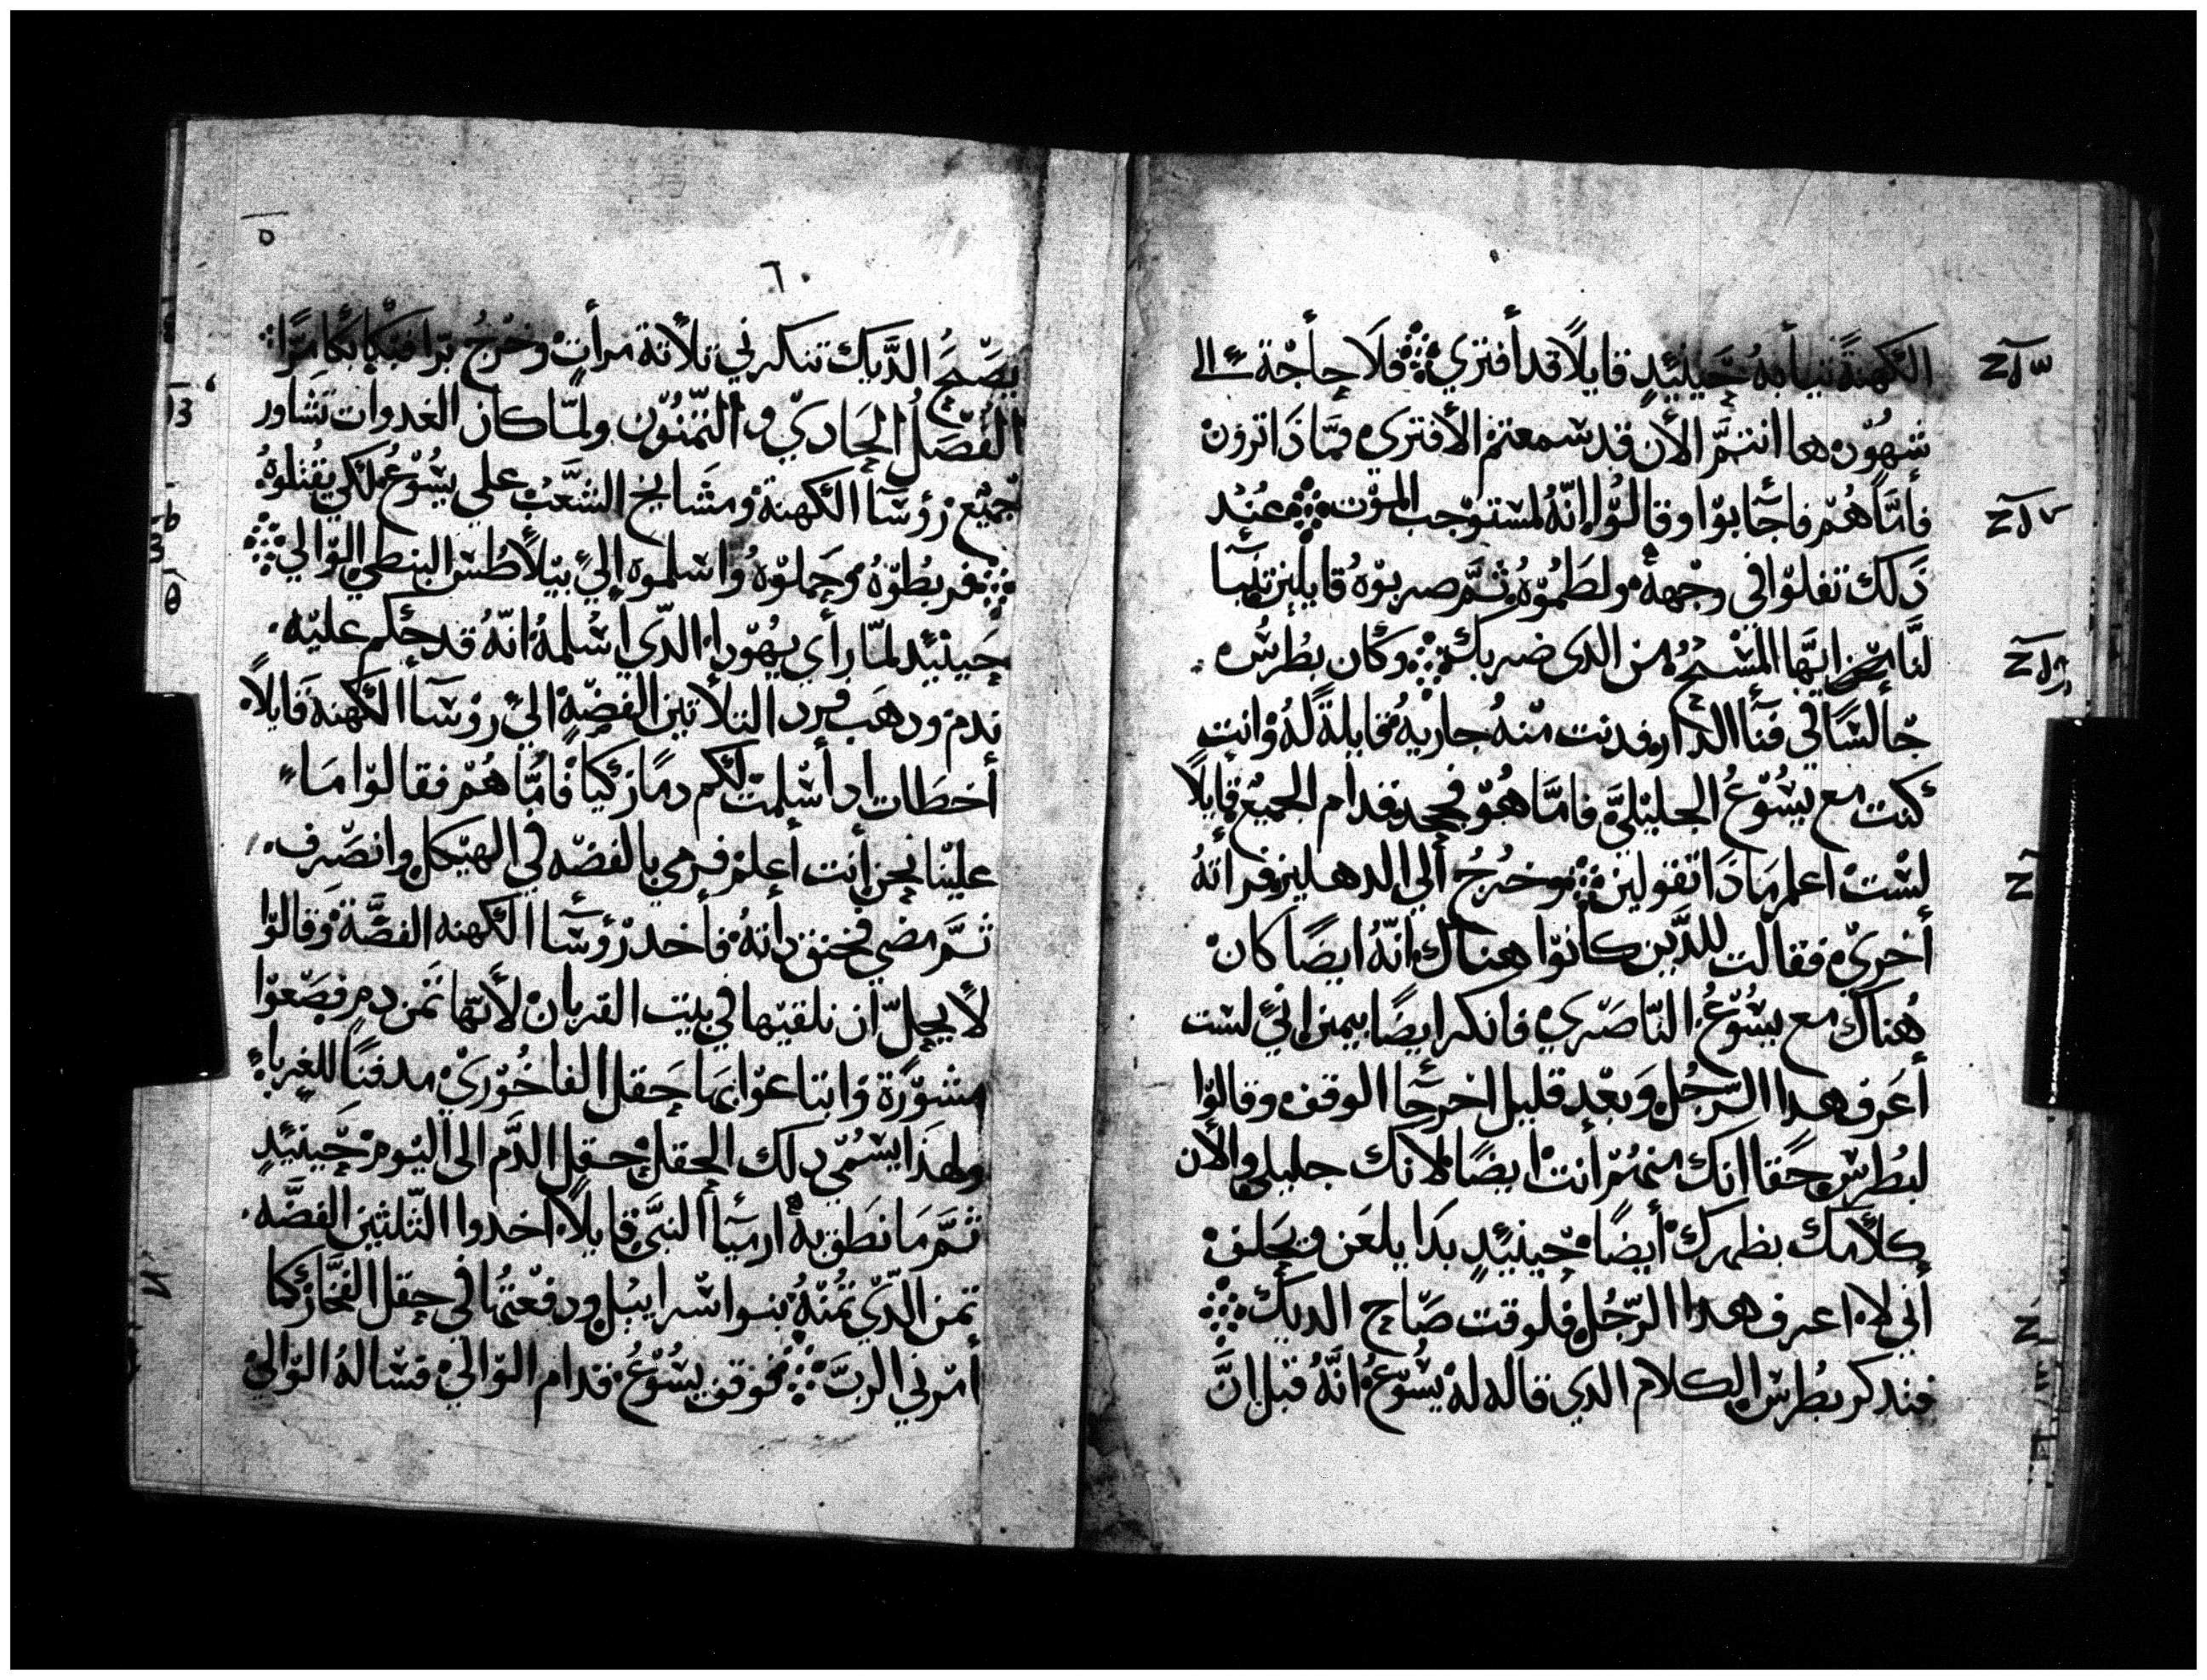 الكهنةً ثيابهُ حينيئدٍ قايلاً قد أفتري ۞ فلَا حاْجة لي إلى
شهُوْد ها انتمَّ الأن قد سمعتمْ الأفترى فمَّا ذَا ترون
فأمّاَ هُمْ فاجَابوْا وقالوْا إنّهُ لمستوْجب الموْت ۞ عنْد
ذَلك تفلوْا في وجْههْ ولطَمُوْهُ ثمَّ ضربوْهُ قايلين تنبَّا
لنَا ايهَّا المسْيحُ من الدى ضربك ۞ وكَان بطُرسْ
جْالسًا في فنَاا الدار فدنت منْهُ جاريةُ مقابلةً لهُ وانت
كنت مع يسُوْعُ الجليْليَّ فامّا هوْ فجحد قدام الجميْع قايلاً
لسْت اعلم مَادَا تقولين ۞ وخرجُ ألي الدهليز فرأتهُ
أخرىْ فقالت للدَّين كانوْا هناك انّهُ ايضًا كان
هُناك مع يسُوْعُ النّاصَري فانكر ايضًا بيمين إنيْ لست
أعَرف هدا الرّجُل وَبعْد قليل اخرجَا الوقف وقالوْا
لبُطرسْ حقًا انك منهُمْ أنت ايضًا لانك جليلي والأن
كلأمك يظهرك أيضًا حينيئدٍ بدَا يلعَن ويحَلف
أني لا اعرف هدا الرّجُل فلوقت صَاح الديك ۞
فتدكر بطُرسْ الكلام الدي قاله لهْ يسُوْعُ انَّهُ قبْل انَّ
ه
٦٠
يصَيحَ الدَّيك تنكرني تلأتة مرأت وخرجُ برا فبْكا بكًا مرًا
الفْصَلُ الحَاديْ والتمّنُوْن ولمّا كان الغدوات تشاور
جميْع رؤسَأ الكهنة ومشَايخ الشعَّبْ علي يسُوْعُ لكي يقُتلوْهُ
۞ فربطُوْهُ وحمَلوْهُ وُاسلموْه إليْ بيْلاًطُسْ البنطي الوَالي ۞
حَينيئد لمّا رأي يهوْدا الدّي اسُلمهُ انّهُ قد حكم عليْه
ندم ودهَب فرد التلأتين الفضّةْ اليْ رؤسَأ الكهنة قايلاً
أخطَات اد أسلمت لكم دمًا زكيًا فامُّا هُمْ فقالوْا مَاء
عليْنا نحن أنت أعلمْ فرمي بالفضّه في الهيْكل وانصَرف
تمَّ مضي فخنق داتهُ فأخد رؤسَأ الكهنه الفضَّة وقالوْا
لأ يحلّ ان نلقيْها في بيْت القربان لأنّها تمن دم فصَعوْا
مشوْرًة وَابتاعوْا بهَا حَقل الفاخُوْريْ مدفنًا للغربا
ولهدَا يسُمّي دلك الحقل حقل الدَّم الي اليوْم حَينيئدٍ
تمَّ مَا نطَق بهْ ارميَا النبيّ قايلاً اخدوا التّلتين الفضَّه
تمن الدّيْ تمنْهُ بنوا اسراييْل ودفعْتهُا في حقل الفخَّار كما
أمرني الربّ ۞ فوقف يسُوْعُ قدام الوَاليْ فسْالهُ الوَاليْ